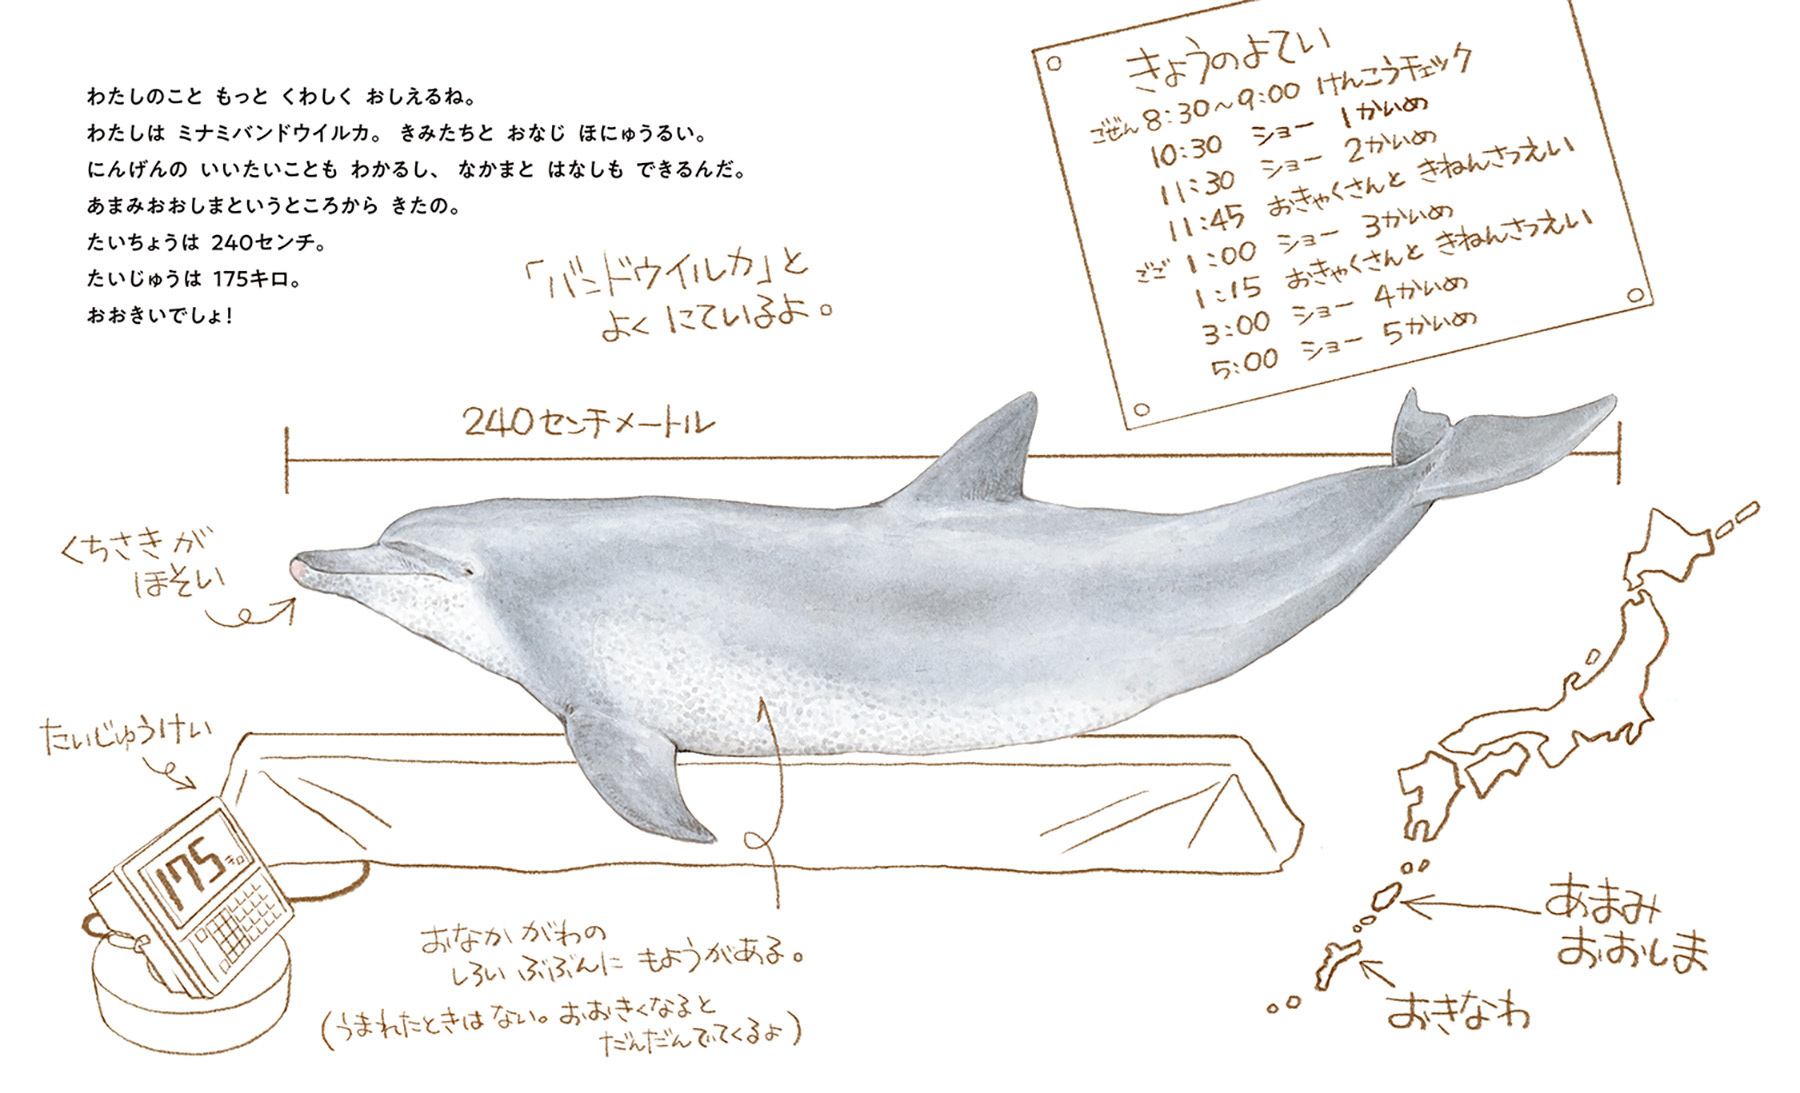 わたしのこと もっと くわしく おしえるね。
わたしは ミナミバンドウイルカ。 きみたちと おなじ ほにゅうるい。
にんげんの いいたいことも わかるし、 なかまと はなしも できるんだ。
あまみおおしまというところから きたの。
たいちょうは 240センチ。
たいじゅうは 175キロ。
おおきいでしょ!
「バンドウイルカ」と
よく にているよ。
きょうのよてい
ごぜん 8:30~9:00 けんこうチェック
10:30 ショー 1かいめ
11:30 ショー 2かいめ
11:45 おきゃくさんと きねんさつえい
ごご 1:00 ショー 3かいめ
1:15 おきゃくさんと きねんさつえい
3:00 ショー 4かいめ
5:00 ショー 5かいめ
240センチメートル
くちさきが
ほそい
たいじゅうけい
175キロ
おなかがわの
しろい ぶぶんに もようがある。
(うまれたときは ない。おおきくなると
だんだんでてくるよ)
あまみ
おおしま
おきなわ